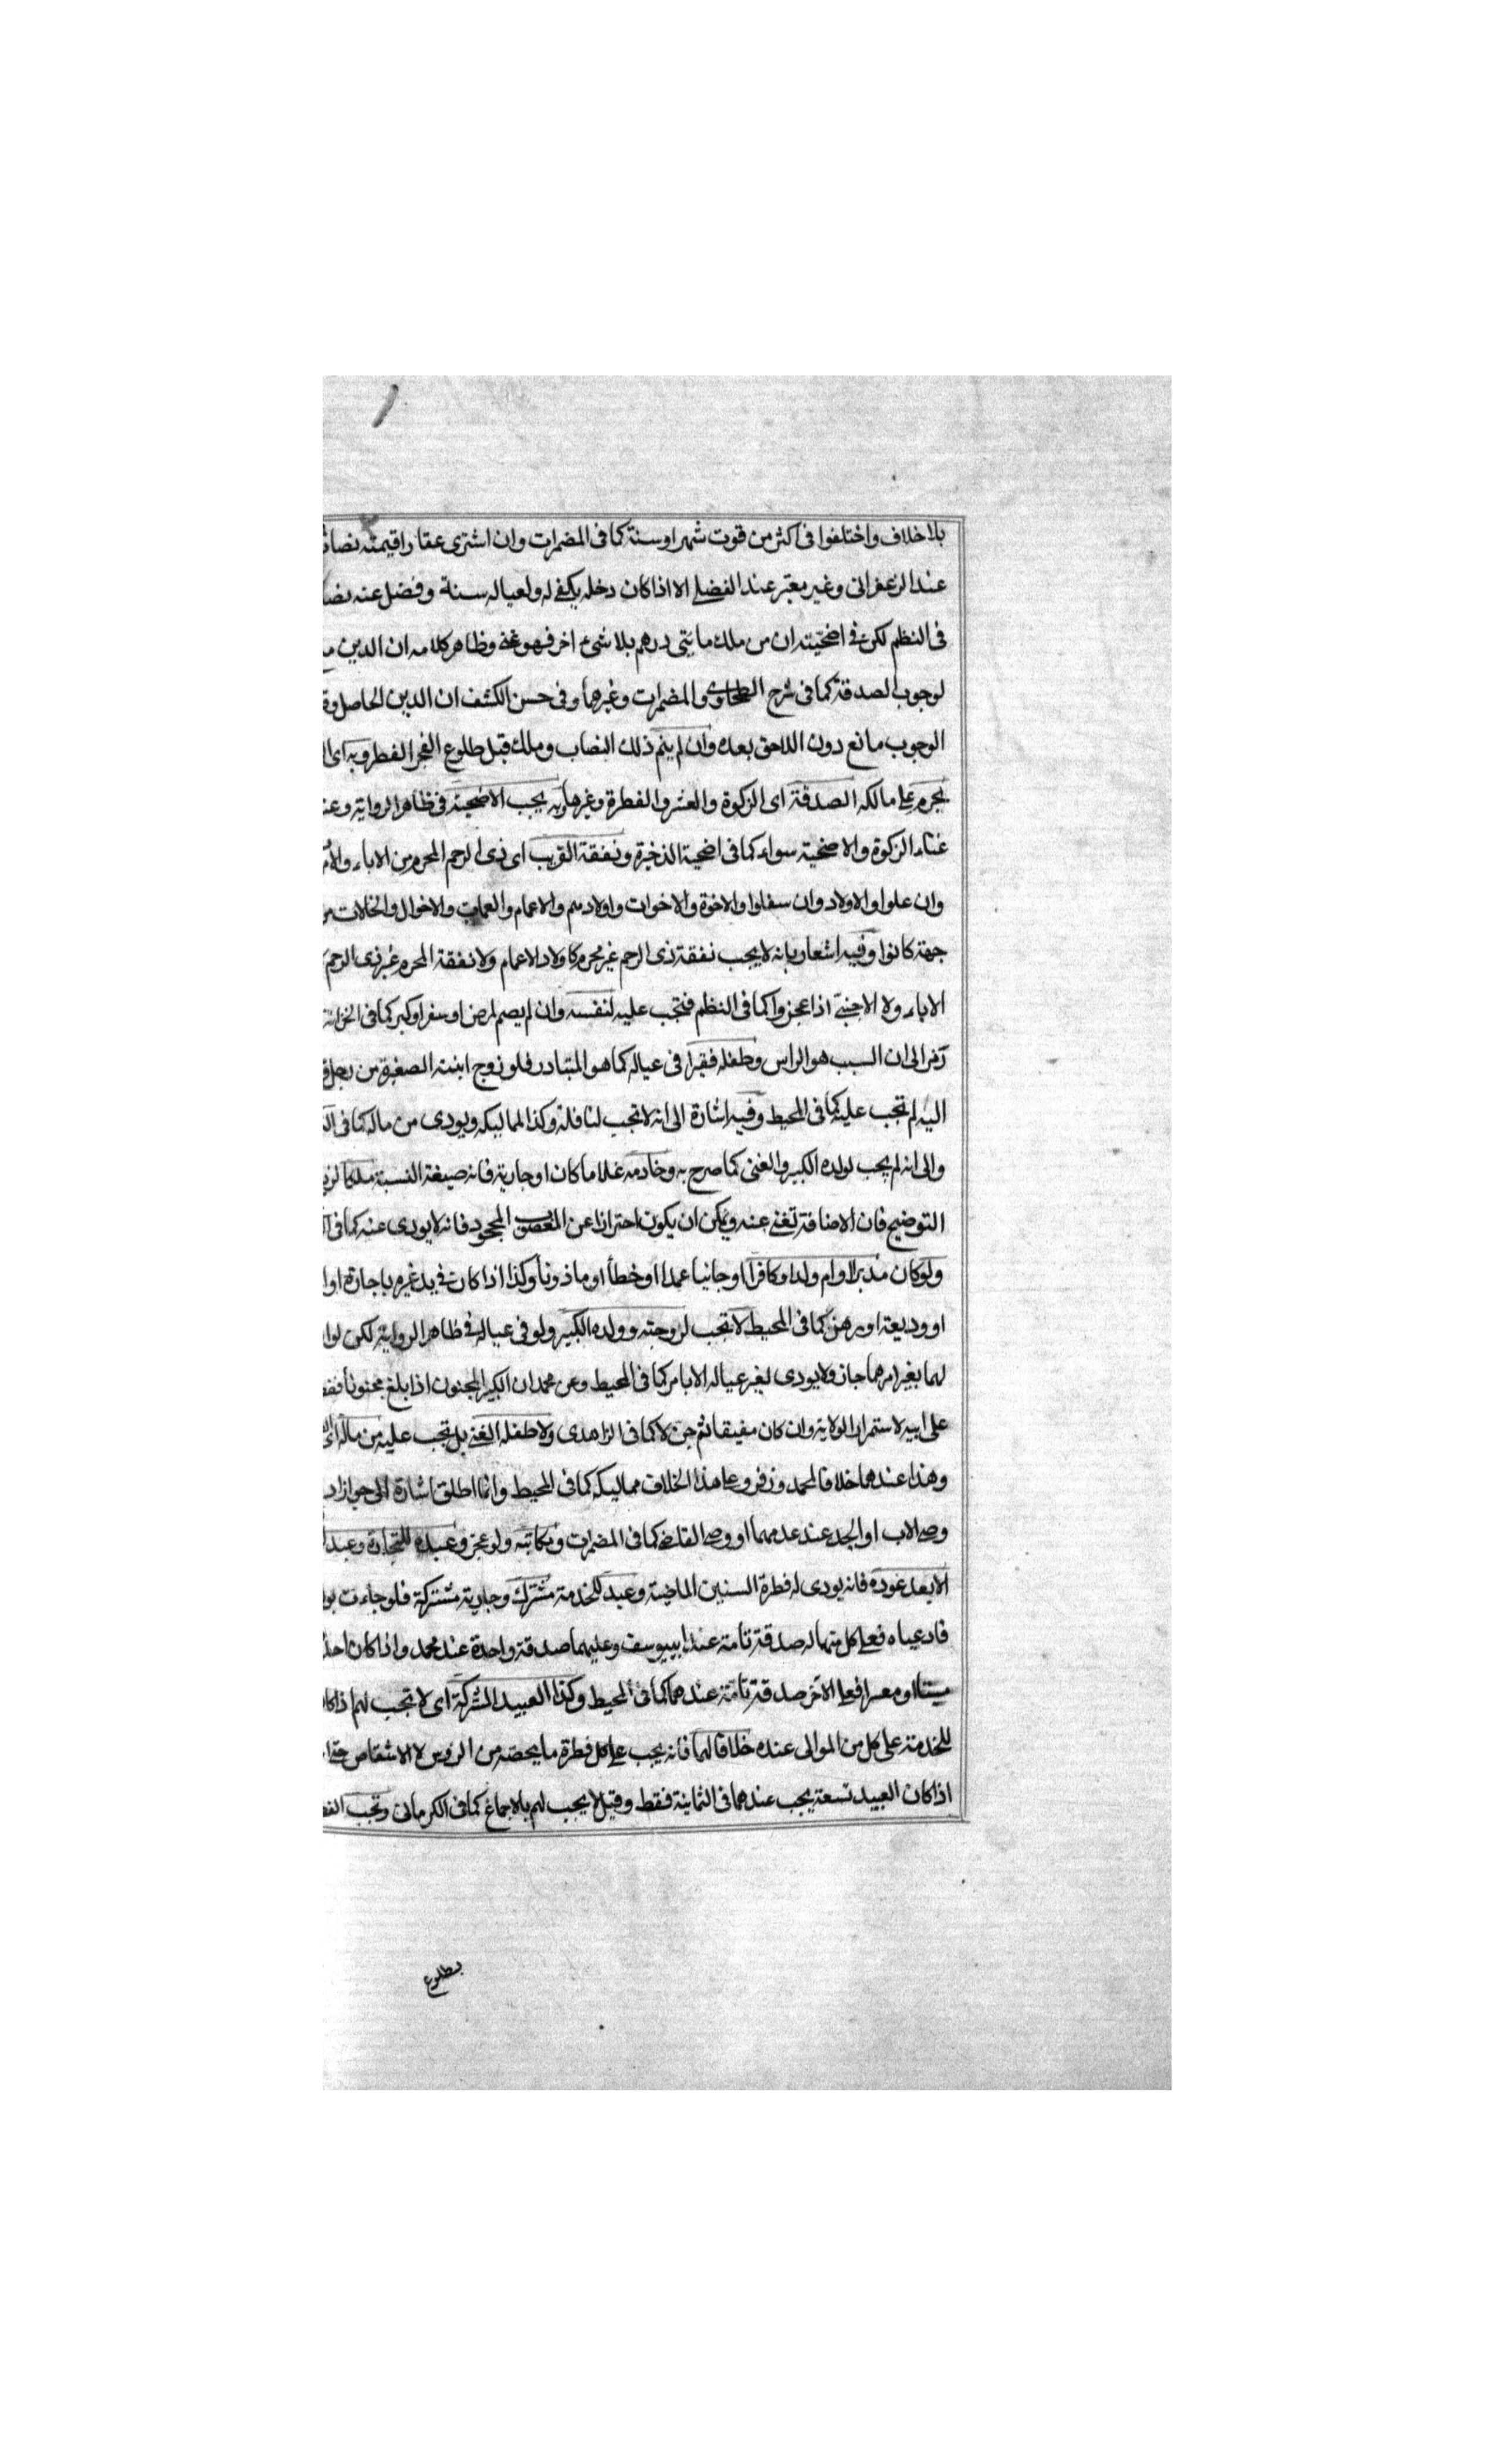 بلا خلاف واختلفوا فى اكثر من قوت شهر او سنة كما فى المضمرات وان اشترى عقارا قيمته نصاب
عند الزعفرانى وغير معتبر عند الفضلى الا اذا كان دخله يكفى له ولعياله سنة وفضل عنه نصا
فى النظم لكن فى اضحيته ان من ملك مايتى درهم بلا شئ اخر فهو غنى وظاهر كلامه ان الدين
لوجوب الصدقة كما فى شرح الطحاوى والمضمرات وغيرهما وفى حسن الكشف ان الدين الحاصل
الوجوب مانع دون اللاحق بعده وان لم ينم ذلك النصاب وملك قبل طلوع الفجر الفطر وبه اى
يحرم على مالكه الصدقة اى الزكوة والعشر والفطرة وغيرها وبه يجب الاضحية فى ظاهر الرواية وعن
غناء الزكوة والاضحية سواء كما فى اضحية الذخيرة ونفقة القريب اى ذى الرحم المحرم من الاباء
وان علوا والاولاد وان سفلوا والاخوة والاخوات واولادهم والاعمام والعمات والاخوال والخالات من
جهة كانوا وفيه اشعار بانه لا يجب نفقة ذى الرحم غير محرم كاولاد الاعمام ولا نفقة المحرم غير ذى الرحم
الاباء ولا الاجنبى اذا عجزوا كما فى النظم فتجب عليه لنفسه وان لم يصم لمرض او سفر او كبر كما فى الخزانة
زفر الى ان السبب هو الراس وطفله فقيرا فى عياله كما هو المتبادر فلو زوج ابنته الصغيرة من رجل
اليه لم تجب عليه كما فى المحيط وفيه اشارة الى انه لا تجب لنافلة وكذا لمماليكه ويودى من ماله كما فى
والى انه لم يجب لولده الكبير والغنى كما صرح به وخادمه غلاما كان او جارية فانه صيغة النسبة ملكا
التوضيح فان الاضافة تغنى عنه ويمكن ان يكون احترازا عن المغصوب المجحود فانه لا يودى عنه كما فى
ولو كان مدبرا او ام ولد او كافرا او جانيا عمدا او خطأ او ماذونا وكذا اذا كان فى يد غيره باجارة او
او وديعة او رهن كما فى المحيط لا تجب لزوجته وولده الكبير ولو فى عياله فى ظاهر الرواية لكن لو
لهما بغير امرهما جاز ولا يودى لغير عياله الا بامر كما فى المحيط وعن محمد ان الكبير المجنون اذا بلغ مجنونا
على ابيه لاستمرار الولاية وان كان مفيقا ثم جن لا كما فى الزاهدى ولا طفله الغنى بل تجب عليه من ماله
وهذا عندهما خلافا لمحمد وزفر وعلى هذا الخلاف مماليكه كما فى المحيط وانما اطلق اشارة الى جواز
وصى الاب او الجد عند عدمهما او وصى القاضى كما فى المضمرات ومكاتبه ولو عجز وعبده للتجارة وعبد
الا بعد عوده فانه يودى له فطرة السنين الماضية وعبد للخدمة مشترك وجارية مشتركة فلو جاءت
فادعياه فعلى كل منهما له صدقة تامة عند ابييوسف وعليهما صدقة واحدة عند محمد واذا كان
ميتا او معسرا فعلى الاخر صدقة تامة عندهما كما فى المحيط وكذا العبيد المشتركة اى لا تجب لهم اذا
للخدمة على كل من الموالى عنده خلافا لهما فانه يجب على كل فطرة ما يخصه من الروس لا الاشقاص
اذا كان العبيد تسعة يجب عندهما فى الثمانية فقط وقيل لا يجب لهم بالاجماع كما فى الكرمانى وتجب
بطلوع